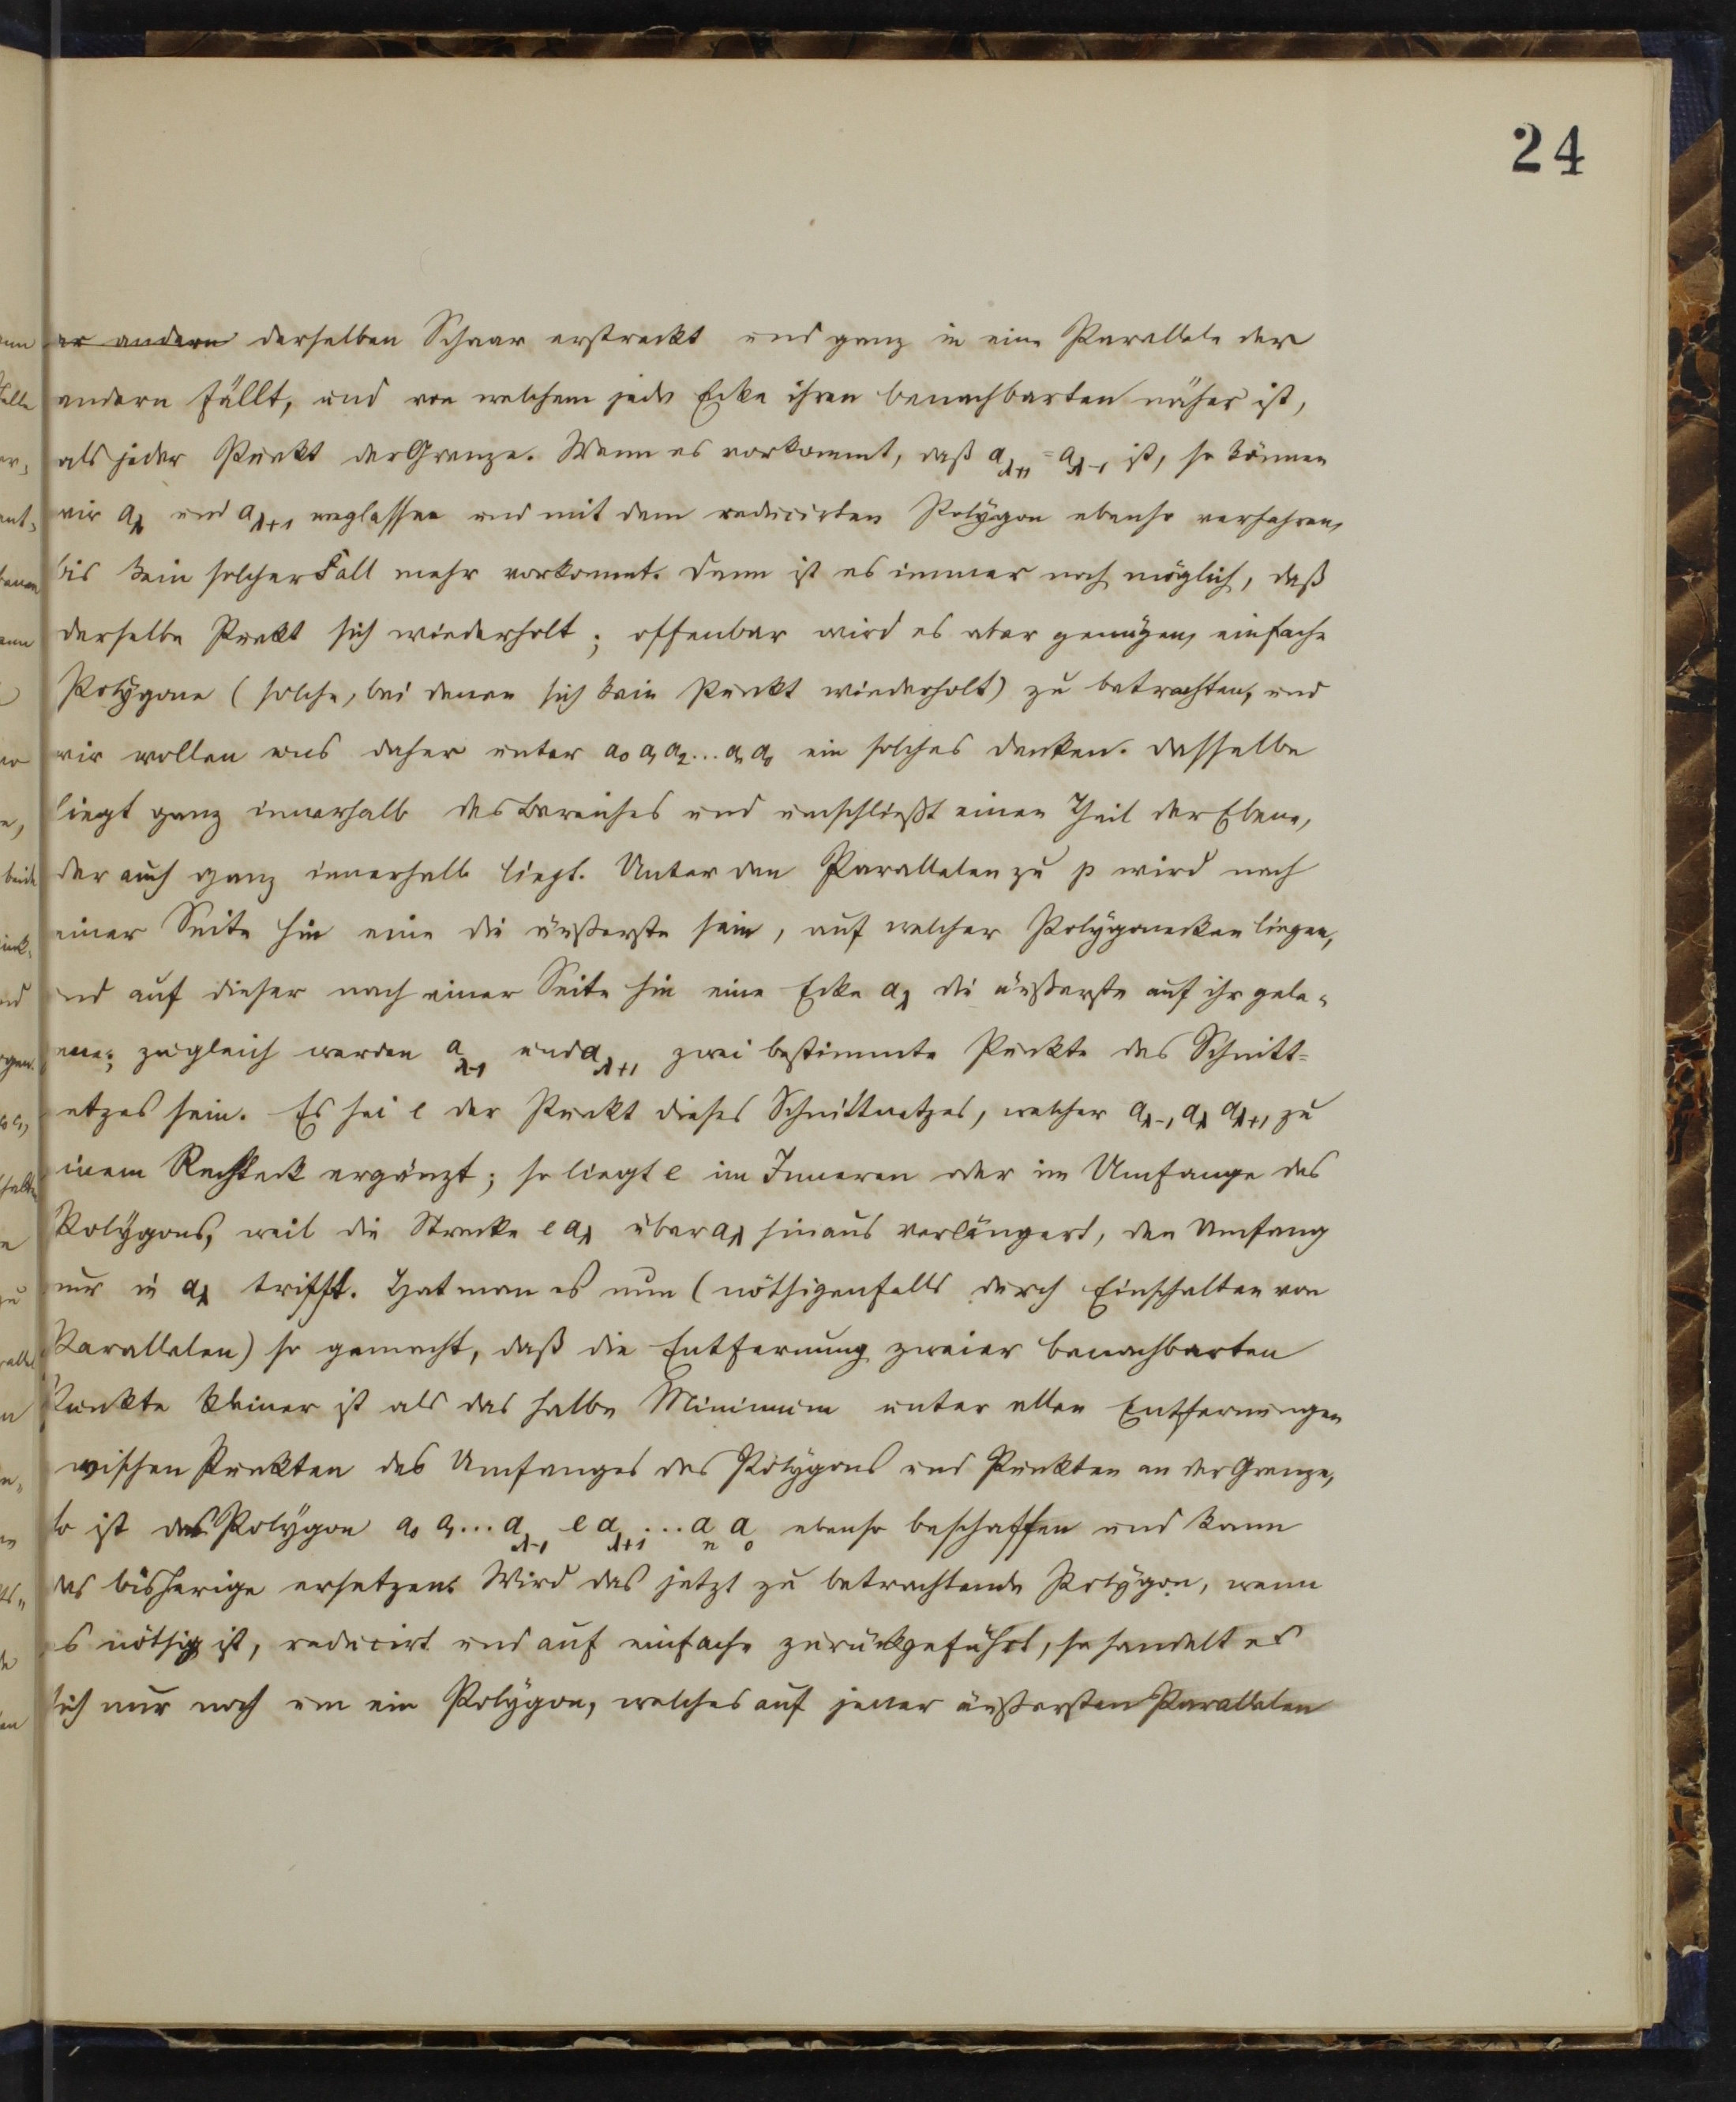 24
er andern derselben Schaar erstreckt und ganz in eine Parallele der
andern fällt, und von welchem jede Ecke ihren benachbarten näher ist,
als jeder Punkt der Grenze. Wenn es vorkommt, daß a_{λ+1} = a_{λ-1} ist, so können
wir a_λ und a_{λ+1} weglassen und mit dem reducirten Polygon ebenso verfahren,
bis kein solcher Fall mehr vorkommt. Dann ist es immer noch möglich, daß
derselbe Punkt sich wiederholt; offenbar wird es aber genügen, einfache
Polygone (solche, bei denen sich kein Punkt wiederholt) zu betrachten, und
wir wollen uns daher unter a_0 a_1 a_2 ... a_n a_0 ein solches denken. Dasselbe
liegt ganz innerhalb des Bereiches und umschließt einen Theil der Ebene,
der auch ganz innerhalb liegt. Unter den Parallelen zu p wird nach
einer Seite hin eine die äußerste sein, auf welcher Polygonecken liegen,
nd auf dieser nach einer Seite hin eine Ecke a_λ die äußerste auf ihr gele=
ene; zugleich werden a_{λ-1} und a_{λ+1} zwei bestimmte Punkte des Schnitt=
etzes sein. Es sei e der Punkt dieses Schnittnetzes, welcher a_{λ-1} a_λ a_{λ+1} zu
inem Rechteck ergänzt; so liegt e im Inneren oder im Umfange des
Polygons, weil die Strecke e a_λ über a_λ hinaus verlängert, den Umfang
nur in a_λ trifft. Hat man es nun (nöthigenfalls durch Einschalten von
Parallelen) so gemacht, daß die Entfernung zweier benachbarten
Punkte kleiner ist als das halbe Minimum unter allen Entfernungen
wischen Punkten des Umfanges des Polygons und Punkten an der Grenze,
so ist das Polygon a_0 a_1 ... a_{λ-1} e a_{λ+1} ... a_n a_0 ebenso beschaffen und kann
das bisherige ersetzen. Wird das jetzt zu betrachtende Polygon, wenn
s nöthig ist, reducirt und auf einfache zurückgeführt, so handelt es
sich nur noch um ein Polygon, welches auf jener äußersten Parallelen